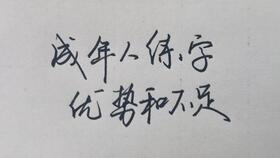 成年人练字
优势和不足